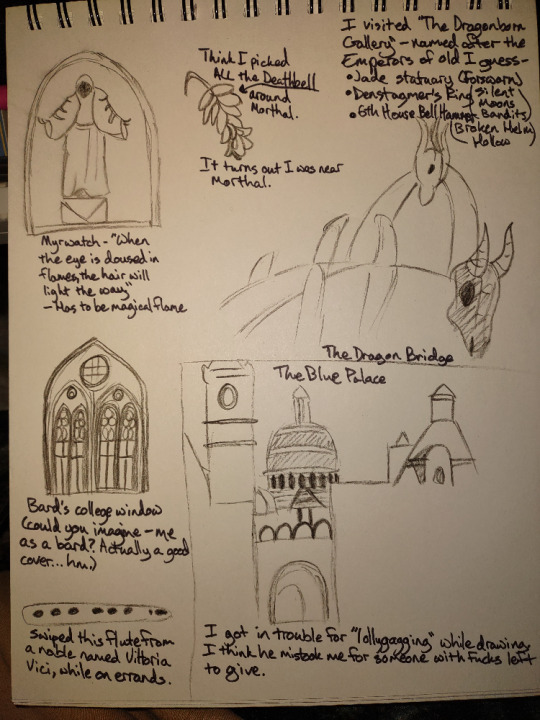 I visited "The Dragonborn
Gallery" - named after the
Emperors of old I guess -
• Jade statuary (Forsworn)
• Denstagmer's Ring (Silent
Moons)
• 6th House Bell Hammer Bandits
(Broken Helm
Hollow)
Think I picked
ALL the Deathbell
around
Morthal.
It turns out I was near
Morthal.
Myrwatch - "When
the eye is doused in
flames, the hair will
light the way"
- Has to be magical flame
The Dragon Bridge
The Blue Palace
Bard's college window
(could you imagine - me
as a bard? Actually a good
cover... hm.)
Swiped this flute from
a noble named Vittoria
Vici, while on errands.
I got in trouble for "lollygagging" while drawing.
I think he mistook me for someone with fucks left
to give.